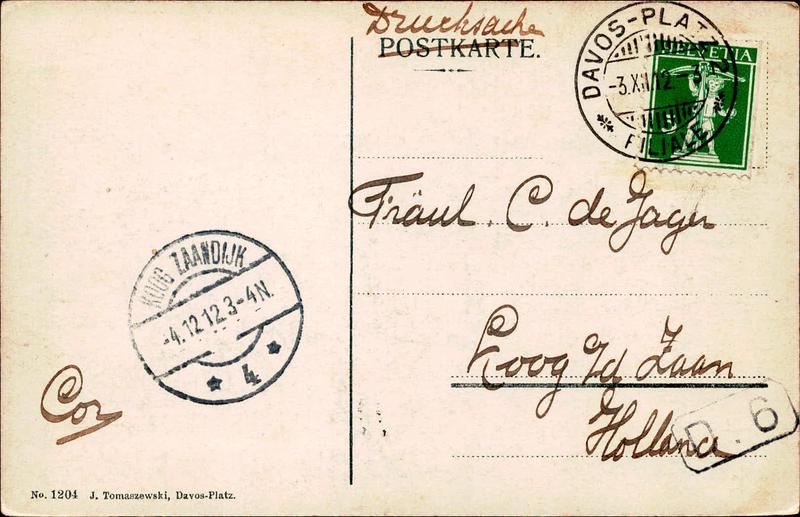 Drucksache
POSTKARTE.
DAVOS-PLATZ
-3.XII.12.-3
FILIALE
HELVETIA
5
Fräul. C. de Jager
KOOG ZAANDIJK
-4.12.12.3-4N.
4
Koog a/d Zaan
Cor
Holland
D. 6
No. 1204 J. Tomaszewski, Davos-Platz.